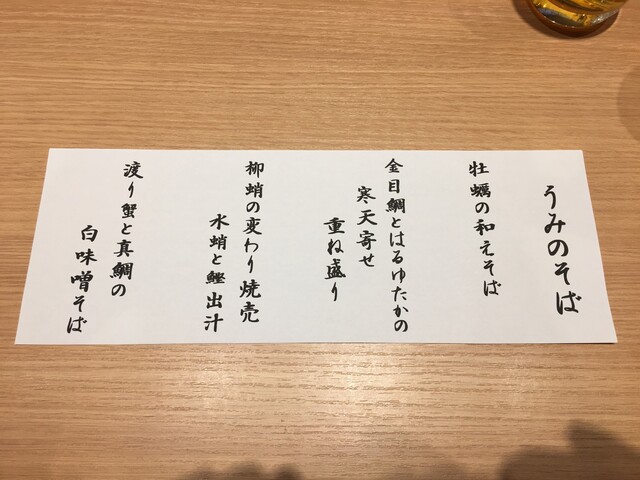 うみのそば
牡蠣の和えそば
金目鯛とはるゆたかの
寒天寄せ
重ね盛り
柳蛸の変わり焼売
水蛸と鰹出汁
渡り蟹と真鯛の
白味噌そば